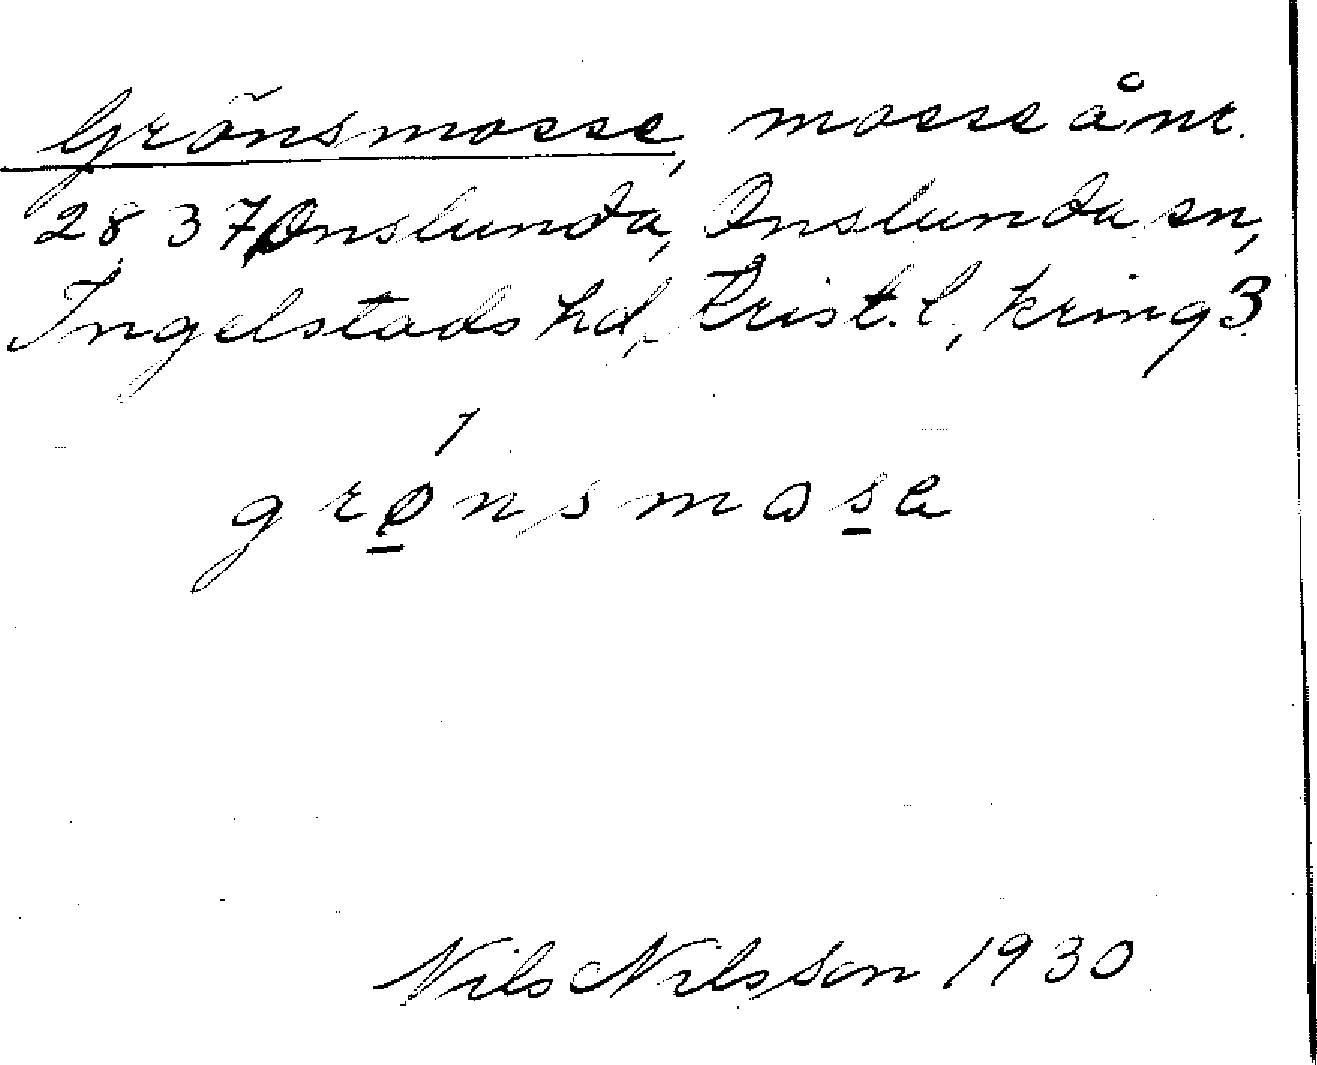 Grönsmosse, mosse å nr.
2837 Onslunda, Onslunda sn,
Ingelstads hd, Krist. l, kring 3.
grønsmosa
Nils Nilsson 1930